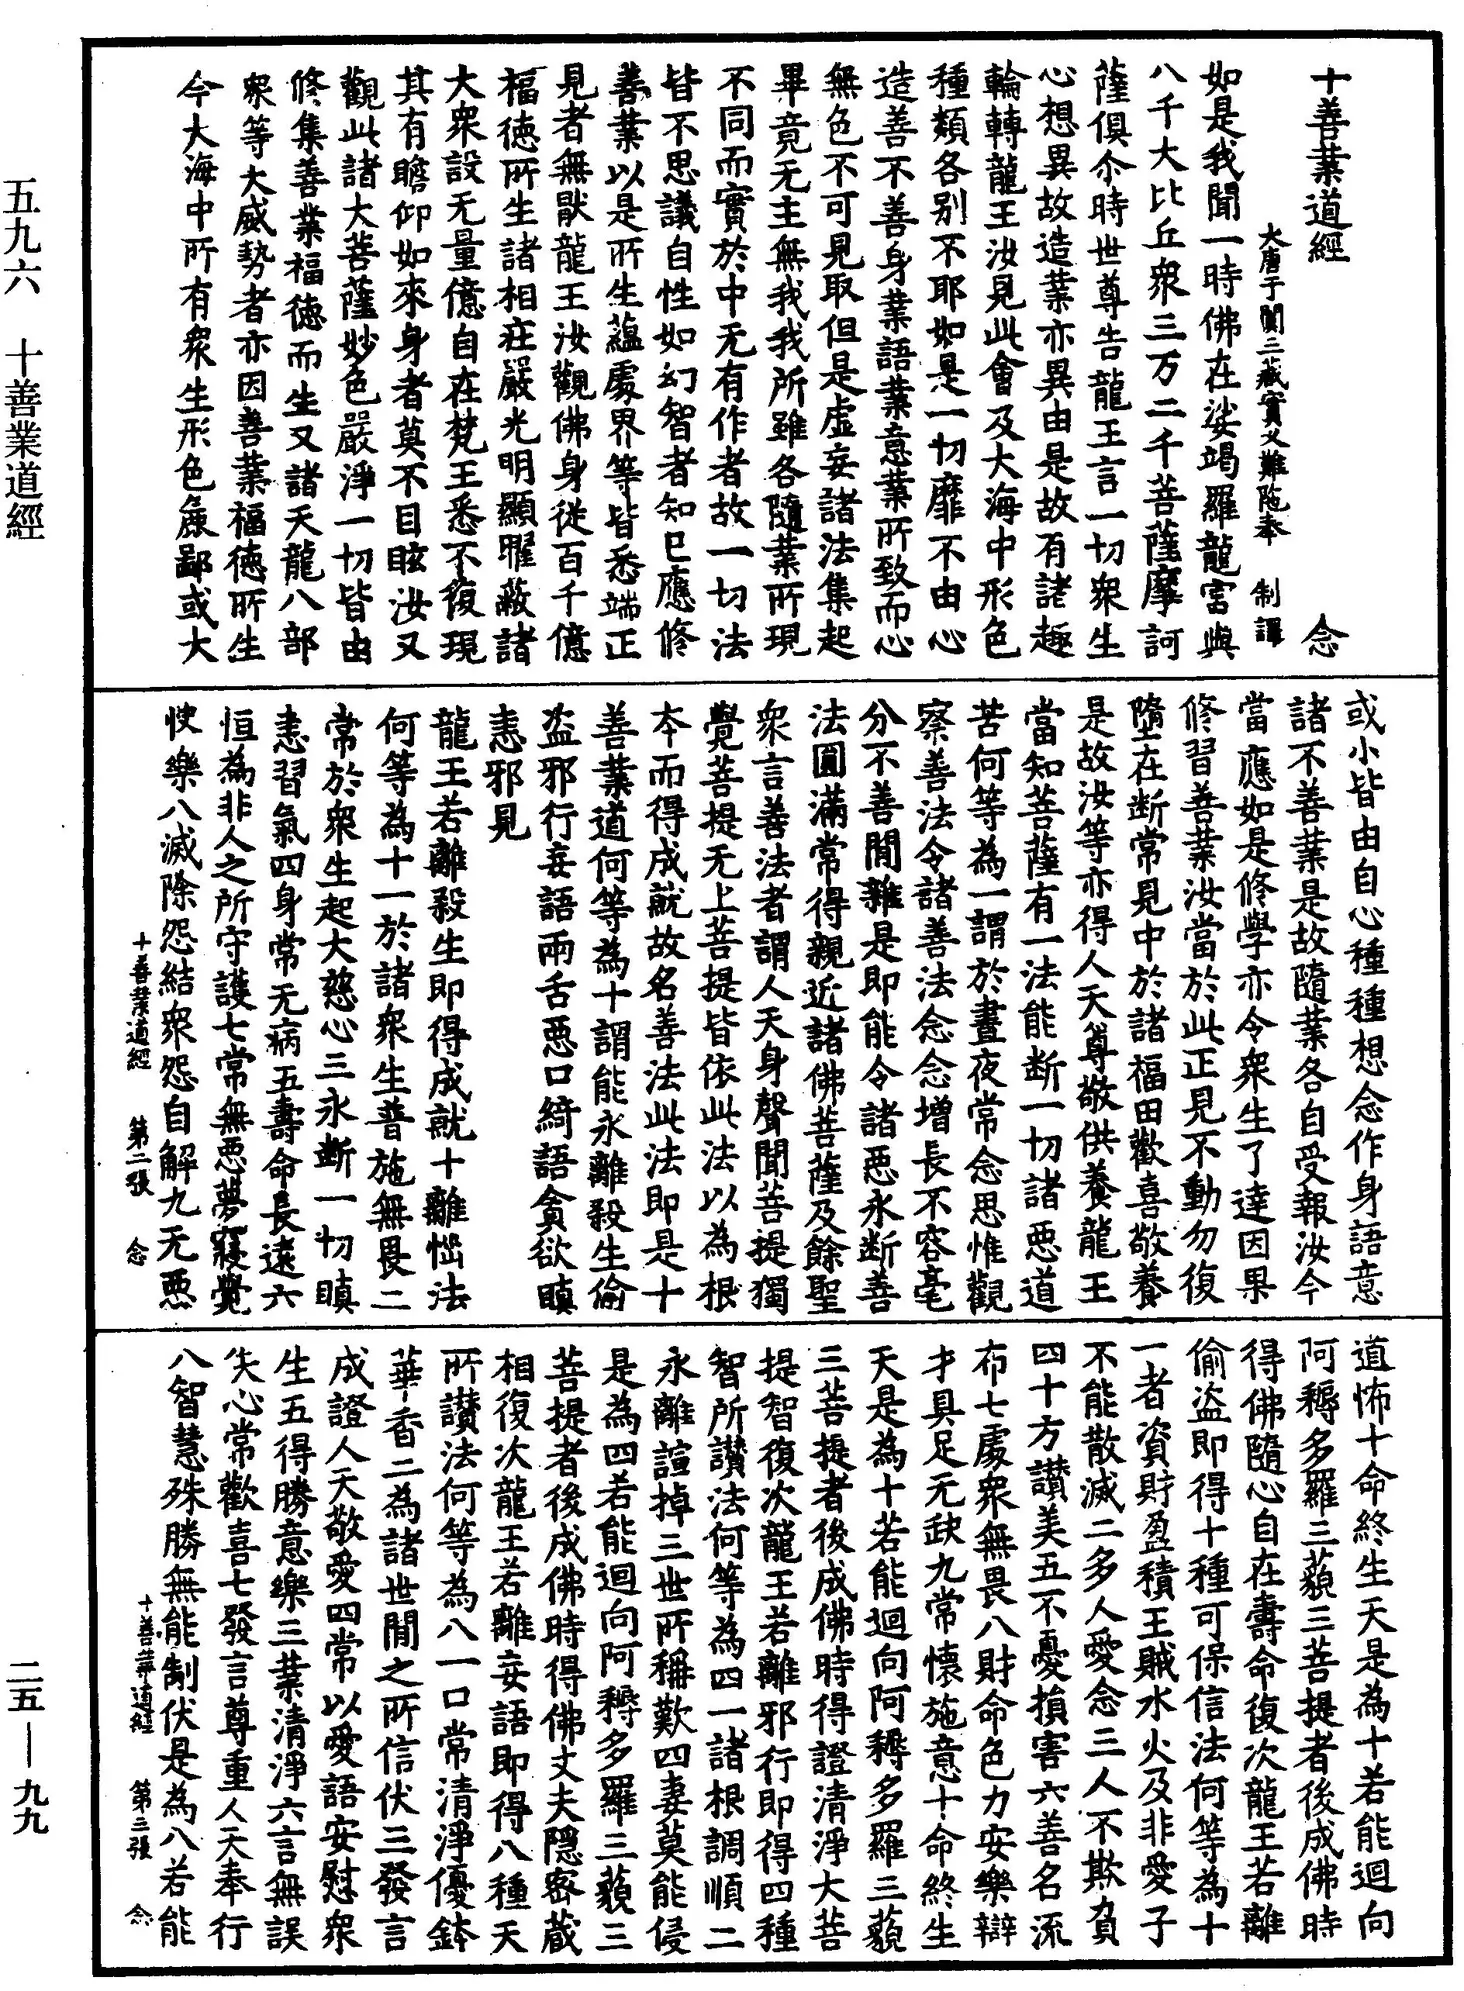 十善業道經　念
大唐于闐三藏實叉難陁奉　制譯
如是我聞一時佛在娑竭羅龍宮與
八千大比丘衆三万二千菩薩摩訶
薩俱尒時世尊告龍王言一切衆生
心想異故造業亦異由是故有諸趣
輪轉龍王汝見此會及大海中形色
種類各別不耶如是一切靡不由心
造善不善身業語業意業所致而心
無色不可見取但是虛妄諸法集起
畢竟无主無我我所雖各隨業所現
不同而實於中无有作者故一切法
皆不思議自性如幻智者知已應修
善業以是所生蘊處界等皆悉端正
見者無猒龍王汝觀佛身從百千億
福德所生諸相莊嚴光明顯曜蔽諸
大衆設无量億自在梵王悉不復現
其有瞻仰如來身者莫不目眩汝又
觀此諸大菩薩妙色嚴淨一切皆由
修集善業福德而生又諸天龍八部
衆等大威勢者亦因善業福德所生
今大海中所有衆生形色麁鄙或大
或小皆由自心種種想念作身語意
諸不善業是故隨業各自受報汝今
當應如是修學亦令衆生了達因果
修習善業汝當於此正見不動勿復
墮在斷常見中於諸福田歡喜敬養
是故汝等亦得人天尊敬供養龍王
當知菩薩有一法能斷一切諸惡道
苦何等為一謂於晝夜常念思惟觀
察善法令諸善法念念增長不容毫
分不善閒雜是即能令諸惡永斷善
法圓滿常得親近諸佛菩薩及餘聖
衆言善法者謂人天身聲聞菩提獨
覺菩提无上菩提皆依此法以為根
本而得成就故名善法此法即是十
善業道何等為十謂能永離殺生偷
盜邪行妄語兩舌惡口綺語貪欲瞋
恚邪見
龍王若離殺生即得成就十離惱法
何等為十一於諸衆生普施無畏二
常於衆生起大慈心三永斷一切瞋
恚習氣四身常无病五壽命長遠六
恒為非人之所守護七常無惡夢寢覺
快樂八滅除怨結衆怨自解九无惡
十善業道經　第二張　念
道怖十命終生天是為十若能迴向
阿耨多羅三藐三菩提者後成佛時
得佛隨心自在壽命復次龍王若離
偷盜即得十種可保信法何等為十
一者資財盈積王賊水火及非愛子
不能散滅二多人愛念三人不欺負
四十方讚美五不憂損害六善名流
布七處衆無畏八財命色力安樂辯
才具足无缺九常懷施意十命終生
天是為十若能迴向阿耨多羅三藐
三菩提者後成佛時得證清淨大菩
提智復次龍王若離邪行即得四種
智所讚法何等為四一諸根調順二
永離諠掉三世所稱歎四妻莫能侵
是為四若能迴向阿耨多羅三藐三
菩提者後成佛時得佛丈夫隱密藏
相復次龍王若離妄語即得八種天
所讚法何等為八一口常清淨優鉢
華香二為諸世閒之所信伏三發言
成證人天敬愛四常以愛語安慰衆
生五得勝意樂三業清淨六言無誤
失心常歡喜七發言尊重人天奉行
八智慧殊勝無能制伏是為八若能
十善業道經　第三張　念
五九六　十善業道經
二五—九九